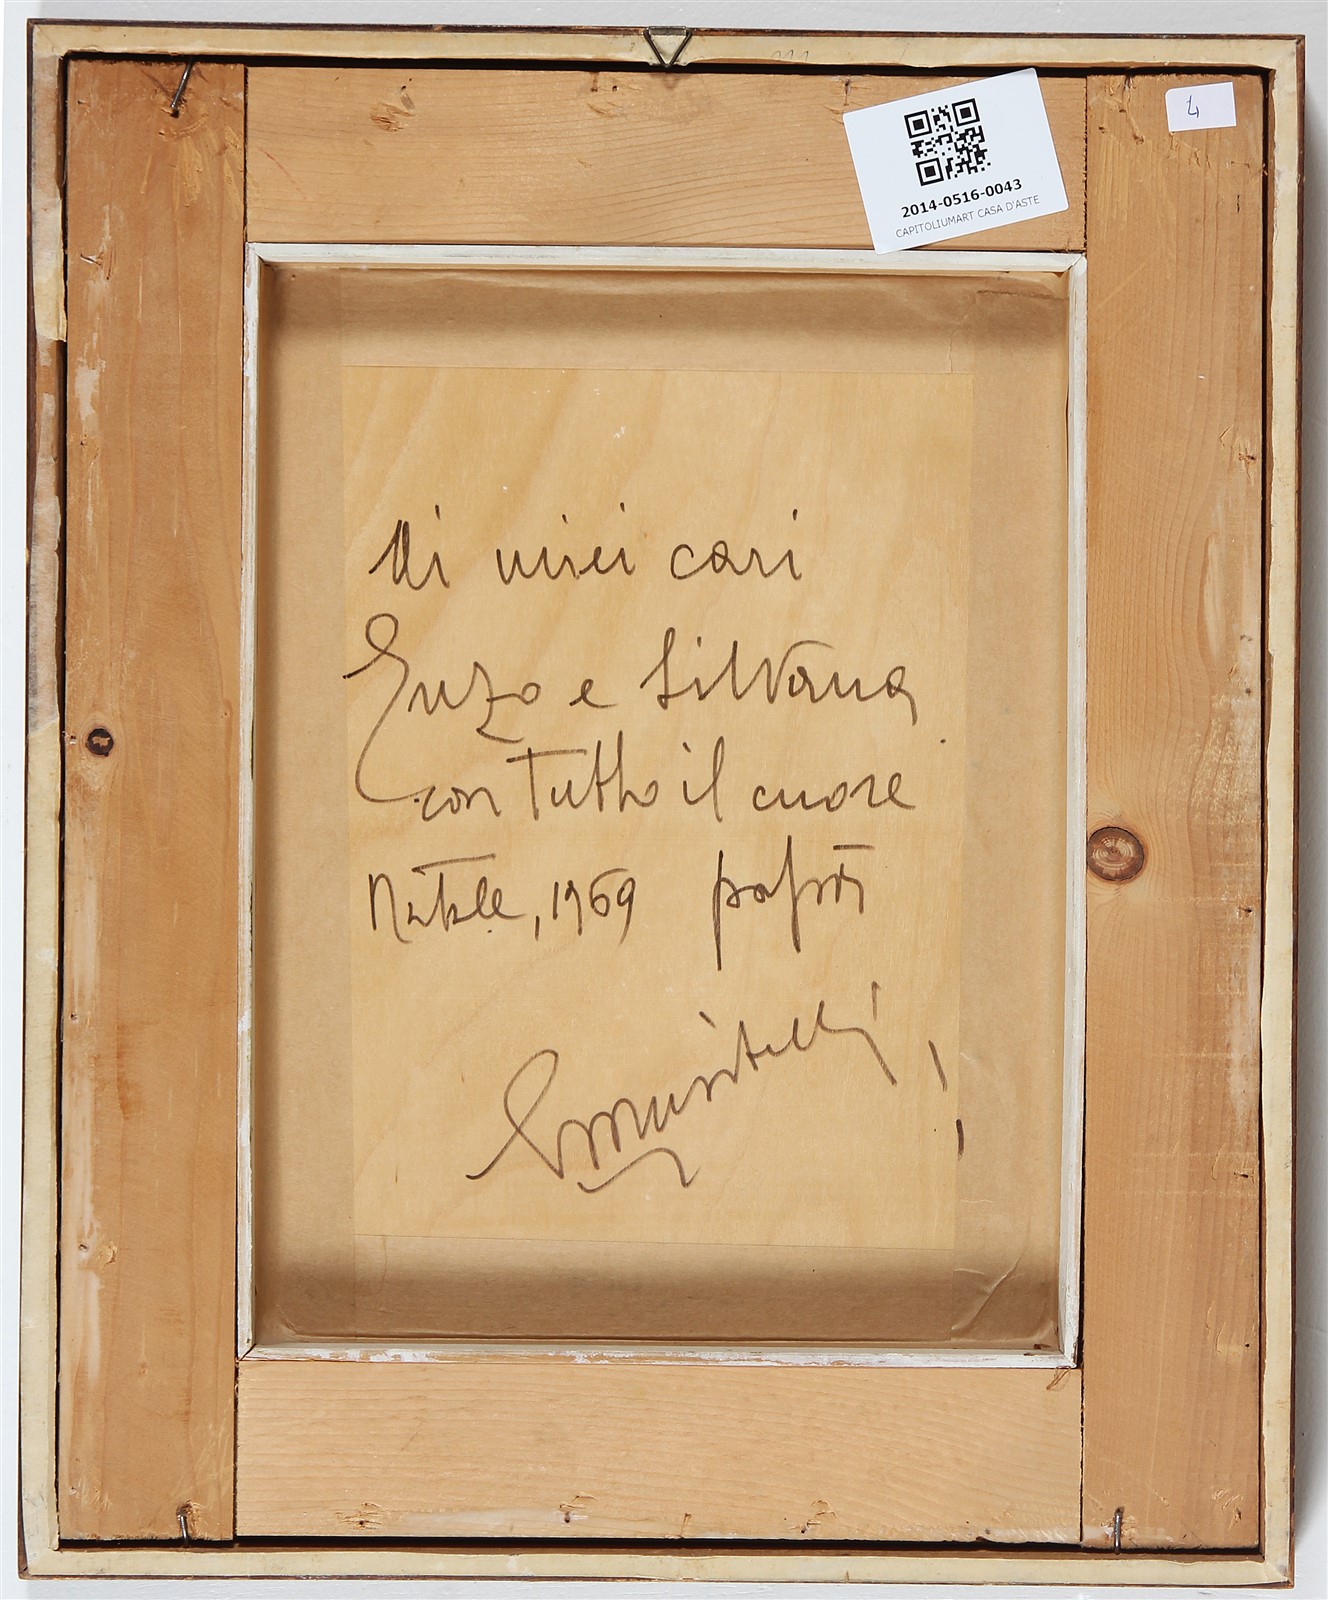 4
2014-0516-0043
CAPITOLIUMART CASA D'ASTE
Ai miei cari
Enzo e Silvana
con tutto il cuore
Natale, 1969